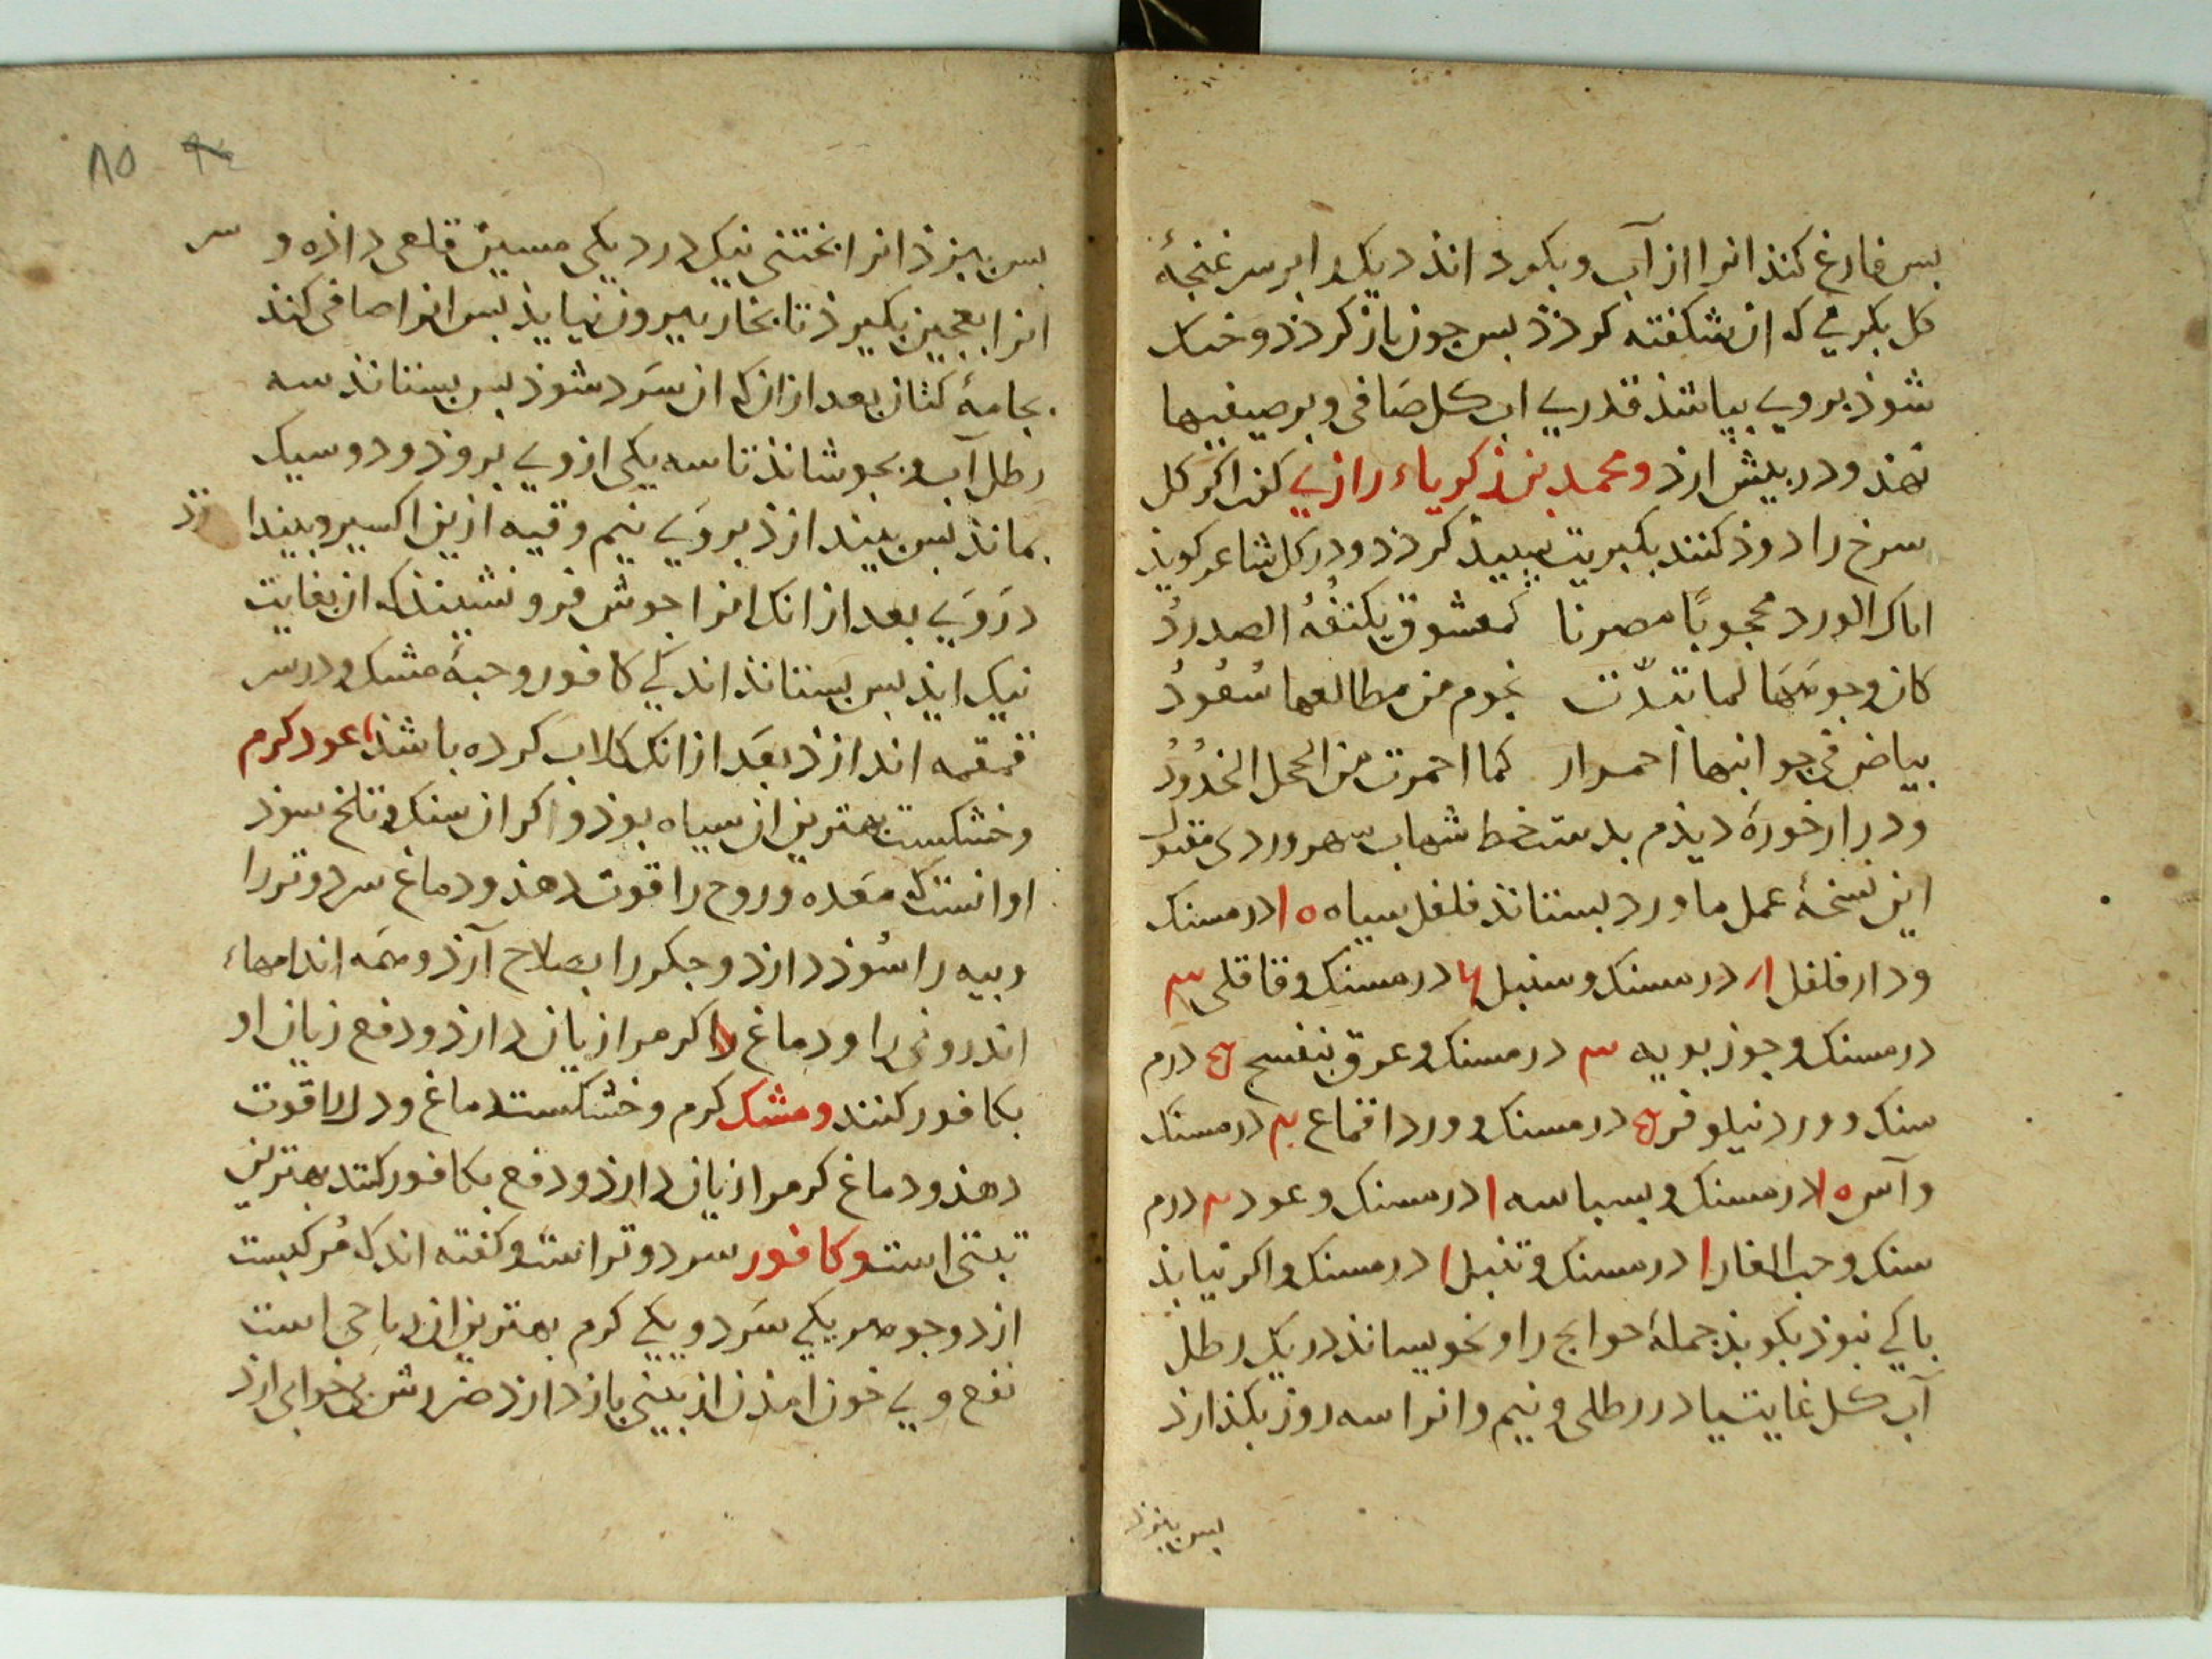 بس فارغ کنذ انرا از آب و بکرداند دیک را بر سر غنجهٔ
کل بکرمی که ان شکفته کردذ بس جون باز کردذ و خنک
شوذ بروی بباشذ قدری اب کل صافی و بر صیفیها
نهذ و در بیش ارذ و محمد بن زکریاء رازی کفت اکر کل
سرخ را دوذ کنند بکبریت سبیذ کردذ و در کل شاعر کویذ
اتاک الورد محجوبًا مصونا کمعشوق یکتنفُهُ الصدودُ
کان وجوهها لما تبدّت نجوم من مطالعها سُعُودُ
بیاض فی جوانبها احمرار کما احمرت من الخجل الخُدُودُ
و در ابرخوره دیذم بدستخط شهاب سهروردی منقول
این نسخهٔ عمل ماورد بستاند فلفل سیاه ١٥ درمسنک
و دارفلفل درمسنک و سنبل درمسنک و قاقلی ٣
درمسنک و جوز بویه ٣ درمسنک و عرق بنفسج درم
سنک و ورد نیلوفر درمسنک و ورد اقماع درمسنک
و آس درمسنک و بسباسه ١ درمسنک و عود درم
سنک و حب الغار ١ درمسنک و تنبل ١ درمسنک و اکر نیابذ
باکی نبوذ بکوبذ جملهٔ حوایج را و بخویساند در یک رطل
آب کل غایت یا در رطلی و نیم و انرا سه روز بکذارذ
بس ببزذ
٨٥
بس ببزذ انرا بختنی نیک در دیکی مسین قلعی داذه و سر
انرا بعجین بکیرذ تا بخار بیرون نیایذ بس انرا صافی کند
بجامهٔ کتان بعد از ان که ان سَرد شوذ بس بستاند سه
رطل آب و بجوشاند تا سه یکی از وی بروذ و دو سیک
بماند بس بیندازذ بروَی نیم وقیه ازین اکسیر و بیندازذ
دروَی بعد از انک انرا جوش فرو نشیند که ان بغایت
نیک ایذ بس بستاند اندکی کافور و حبهٔ مشک و در سر
قمقمه اندازذ بعَد از انک کلاب کرده باشذ عود کرم
و خشکست بهترین ان سیاه بوذ و اکر ان سنک و تلخ سوذ
او انست که معَده و روح را قوت دهذ و دماغ سرد و تر را
و بیه را سُوذ دارذ و جکر را بصلاح آرذ و همَه اندامهاء
اندرونی را و دماغ را کرم را زیان دارذ و دفع زیان او
بکافور کنند و مشک کرم و خشکست دماغ و دل را قوت
دهذ و دماغ کرم را زیان دارذ و دفع بکافور کنند بهترین
تبتی است و کافور سرد و تر است و کفته اند که مُرکبست
از دو جوهر یکی سَرد و یکی کرم بهترین ان رباحی است
نفع وی خون امذن از بینی باز دارذ ضررش بیخوابی ارذ